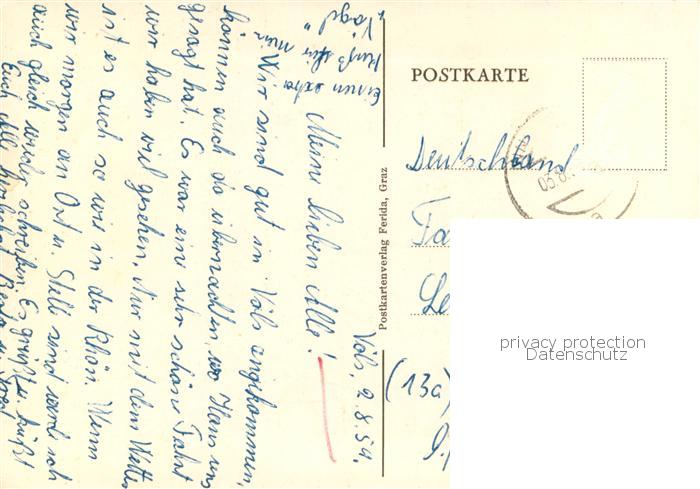 Völs, 2.8.59.
Meine lieben Alle!
Wir sind gut in Völs angekommen,
können auch da übernachten, wo Hans uns
gesagt hat. Es war eine sehr schöne Fahrt
wir haben viel gesehen. Nur mit dem Wetter
ist es auch so wie in der Rhön. Wenn
wir morgen an Ort u. Stelle sind werde ich
auch gleich wieder schreiben. Es grüßt u. küßt
Euch Alle herzlichst
Einen extra
Kuß für mein
"Vögel"
Postkartenverlag Ferida, Graz
POSTKARTE
Deutschland
(13a)
privacy protection
Datenschutz